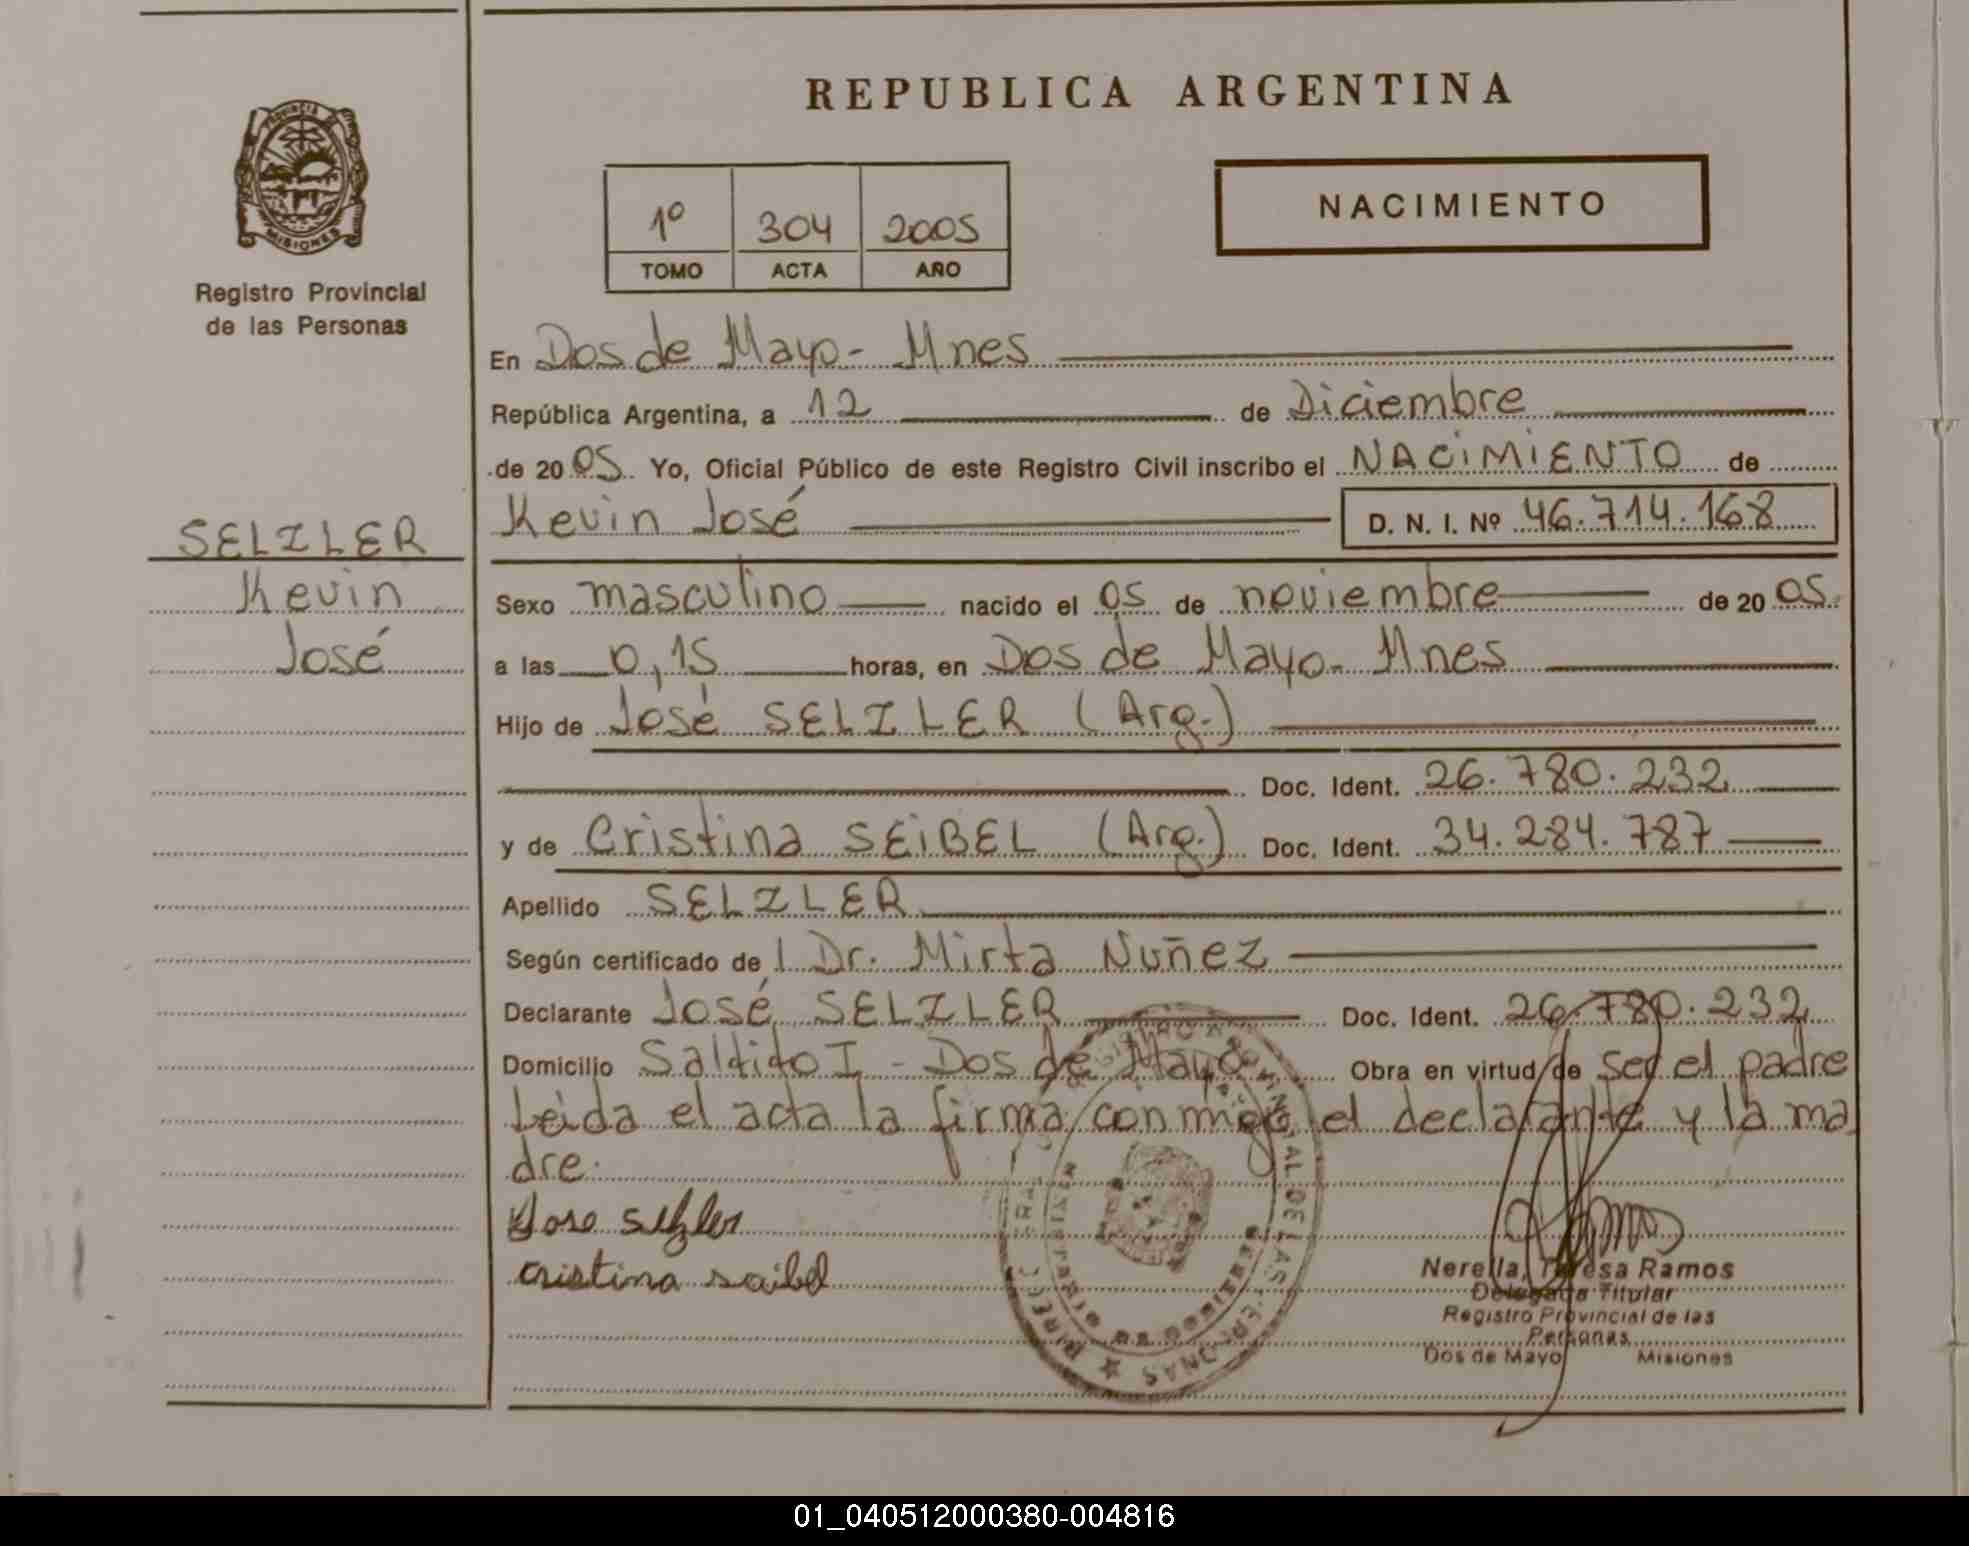 REPUBLICA ARGENTINA
PROVINCIA DE MISIONES
Registro Provincial
de las Personas
1º 304 2005
TOMO ACTA AÑO
NACIMIENTO
En Dos de Mayo - Mnes
República Argentina, a 12 de Diciembre
de 2005 Yo, Oficial Público de este Registro Civil inscribo el NACIMIENTO de
Kevin José D. N. I. Nº 46.714.168
SELZLER
Kevin
José
Sexo masculino nacido el 05 de noviembre de 2005
a las 0,15 horas, en Dos de Mayo - Mnes
Hijo de José SELZLER (Arg.)
Doc. Ident. 26.780.232
y de Cristina SEIBEL (Arg.) Doc. Ident. 34.284.787
Apellido SELZLER
Según certificado de Dr. Mirta Nuñez
Declarante José SELZLER Doc. Ident. 26.780.232
Domicilio Saltito I - Dos de Mayo Obra en virtud de ser el padre
Leída el acta la firma conmigo el declarante y la ma
dre.
Jose Selzler
cristina saibel
Nerella, Teresa Ramos
Delegada Titular
Registro Provincial de las
Personas
Dos de Mayo Misiones
01_040512000380-004816